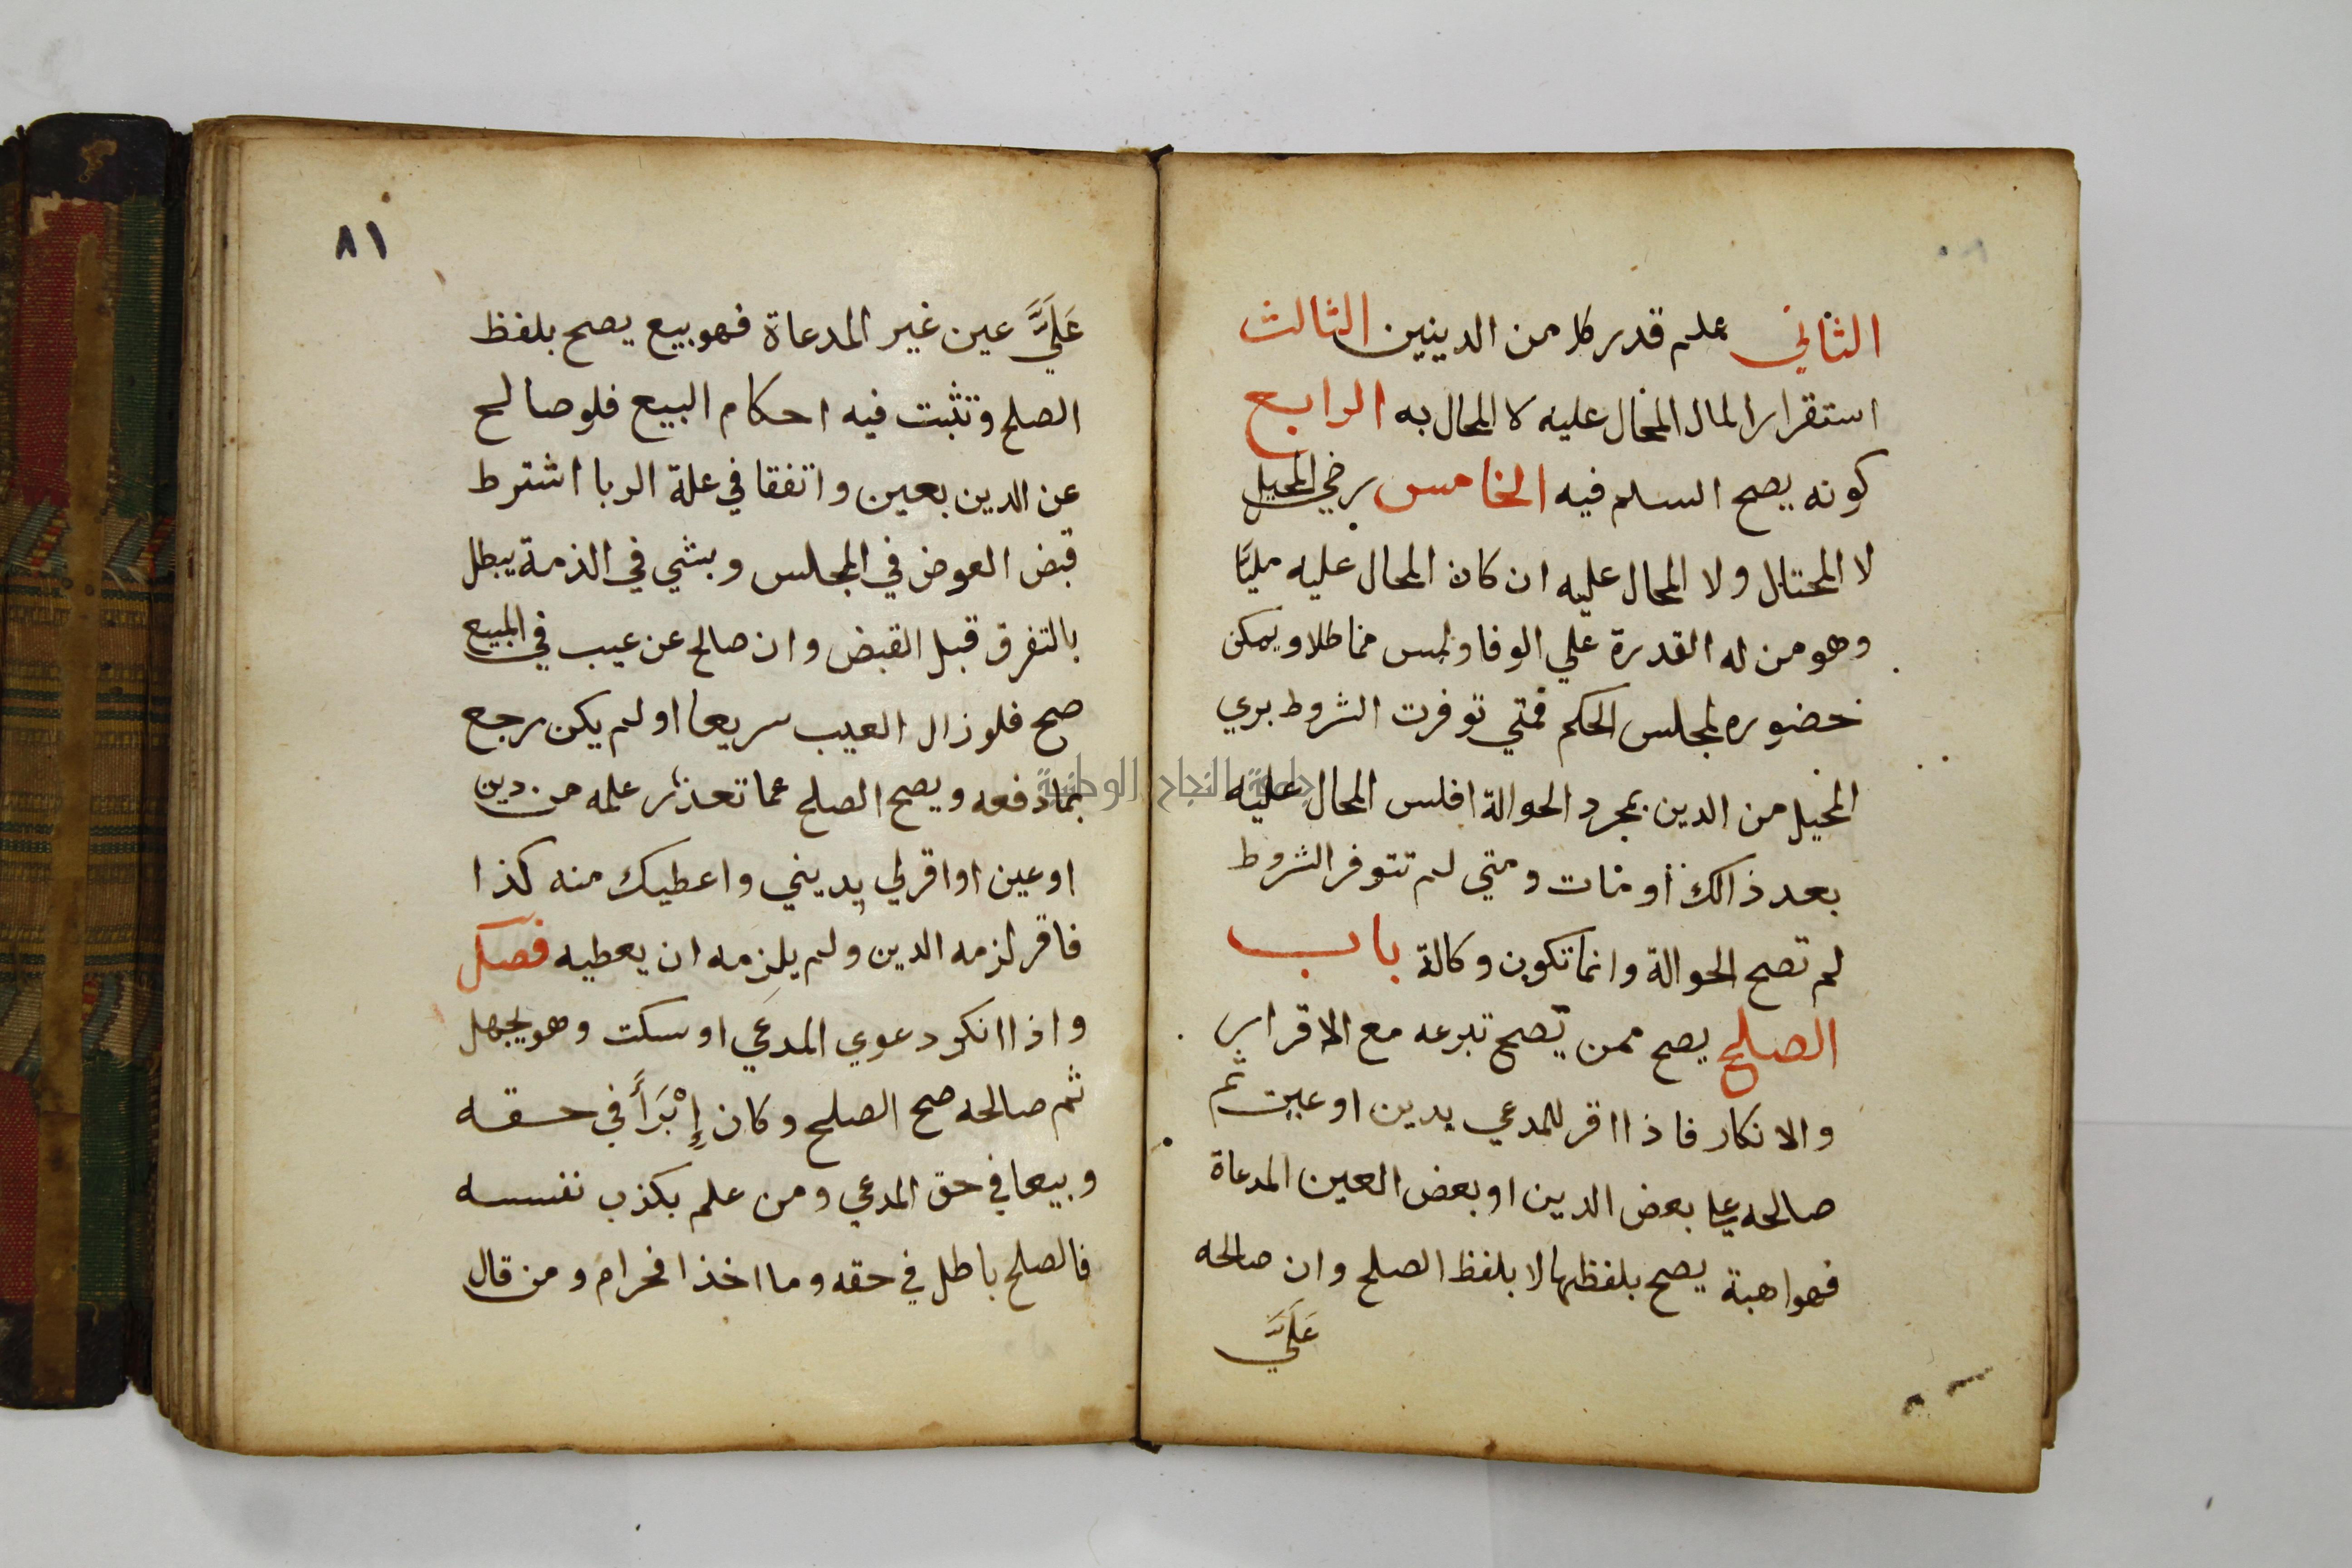 الثاني علم قدر كل من الدينين الثالث
استقرار المال المحال عليه لا المحال به الرابع
كونه يصح السلم فيه الخامس رضي المحيل
لا المحتال ولا المحال عليه ان كان المحال عليه مليًا
وهو من له القدرة علي الوفا وليس مماطلا ويمكن
حضوره لمجلس الحكم فمتي توفرت الشروط بري
المحيل من الدين بمجرد الحوالة افلس المحال عليه
بعد ذالك أو مات ومتي لم تتوفر الشروط
لم تصح الحوالة وانما تكون وكالة باب
الصلح يصح ممن يصح تبرعه مع الاقرار
والانكار فاذا اقر للمدعي بدين او عين ثم
صالحه علي بعض الدين او بعض العين المدعاة
فهو اهبة يصح بلفظها لا بلفظ الصلح وان صالحه
عَلَيَّ
٨١
عَلَيَّ عين غير المدعاة فهو بيع يصح بلفظ
الصلح وتثبت فيه احكام البيع فلو صالح
عن الدين بعين واتفقا في علة الربا اشترط
قبض العوض في المجلس وبشي في الذمة يبطل
بالتفرق قبل القبض وان صالح عن عيب في المبيع
صح فلو زال العيب سريعا او لم يكن رجع
بما دفعه ويصح الصلح عما تعذر علمه من دين
او عين او اقر لي بديني واعطيك منه كذا
فاقر لزمه الدين ولم يلزمه ان يعطيه فصل
واذا انكر دعوي المدعي او سكت وهو يجهل
ثم صالحه صح الصلح وكان إِبْرَأً في حقه
وبيعا في حق المدعي ومن علم بكذب نفسه
فالصلح باطل في حقه وما اخذا فحرام ومن قال
جامعة النجاح الوطنية